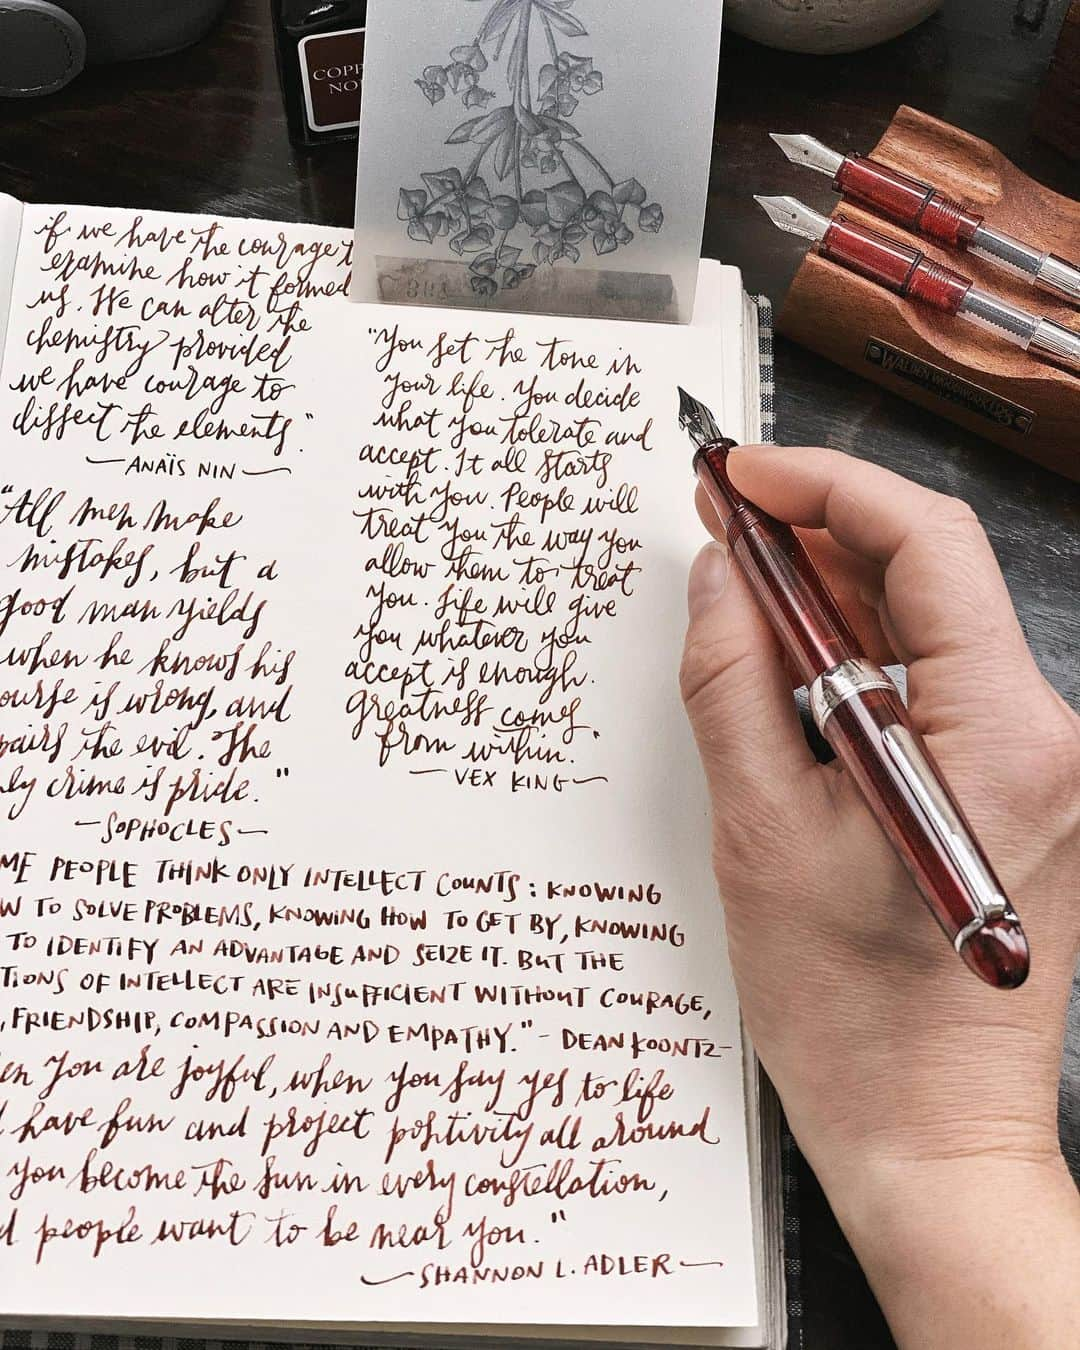 COPP
NO
if we have the courage t
examine how it formed
us. We can alter the
chemistry provided
we have courage to
dissect the elements."
—ANAÏS NIN—
"All men make
mistakes, but a
good man yields
when he knows his
ourse is wrong, and
pairs the evil. The
ly crime is pride."
—SOPHOCLES—
"You set the tone in
your life. You decide
what you tolerate and
accept. It all starts
with you. People will
treat you the way you
allow them to treat
you. Life will give
you whatever you
accept is enough.
Greatness comes
from within."
—VEX KING—
ME PEOPLE THINK ONLY INTELLECT COUNTS: KNOWING
W TO SOLVE PROBLEMS, KNOWING HOW TO GET BY, KNOWING
TO IDENTIFY AN ADVANTAGE AND SEIZE IT. BUT THE
TIONS OF INTELLECT ARE INSUFFICIENT WITHOUT COURAGE,
, FRIENDSHIP, COMPASSION AND EMPATHY." - DEAN KOONTZ-
en you are joyful, when you say yes to life
d have fun and project positivity all around
you become the sun in every constellation,
d people want to be near you."
—SHANNON L. ADLER—
WALDEN WOODWORKERS